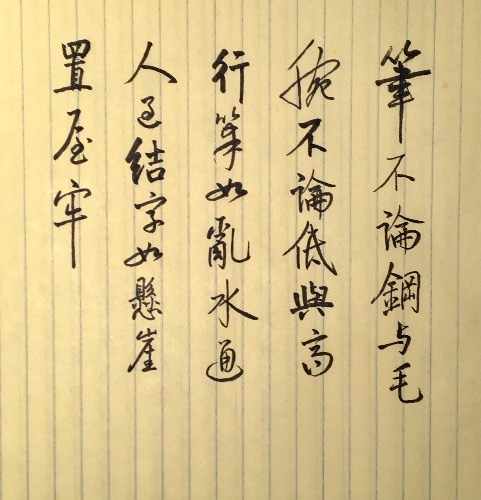 筆不論鋼与毛
腕不論低與高
行笔如亂水通
人过結字如懸崖
置屋牢